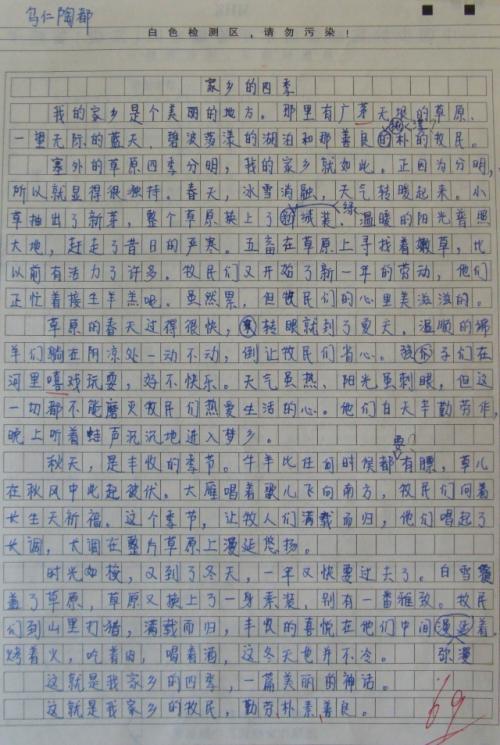 乌仁陶都
白色检测区,请勿污染!
家乡的四季
我的家乡是个美丽的地方。那里有广茅无垠的草原、
一望无际的蓝天、碧波荡漾的湖泊和那善良的朴的牧民。
塞外的草原四季分明,我的家乡就如此。正因为分明,
所以就显得很独特。春天,冰雪消融,天气转暖起来。小
草抽出了新芽,整个草原换上了绿装。温暖的阳光普照
大地,赶走了昔日的严寒。五畜在草原上寻找着嫩草,比
以前有活力了许多。牧民们又开始了新一年的劳动,他们
正忙着接生羊羔呢。虽然累,但牧民们的心里美滋滋的。
草原的春天过得很快,转眼就到了夏天,温顺的绵
羊们躺在阴凉处一动不动,倒让牧民们省心。孩子们在
河里嘻戏玩耍,好不快乐。天气虽热、阳光虽刺眼,但这
一切都不能磨灭牧民们热爱生活的心。他们白天辛勤劳作,
晚上听着蛙声沉沉地进入梦乡。
秋天,是丰收的季节。牛羊比任何时候都有膘,草儿
在秋风中此起彼伏。大雁唱着歌儿飞向南方,牧民们向着
长生天祈福。这个季节,让牧人们满载而归,他们唱起了
长调,大调在整片草原上漫延悠扬。
时光如梭,又到了冬天,一年又快要过去了。白雪覆
盖了草原,草原又换上了一身素装,别有一番雅致。牧民
们到山里打猎,满载而归,丰收的喜悦在他们中间漫延着。
烤着火,吃着肉,喝着酒,这冬天也并不冷。 弥漫
这就是我家乡的四季,一篇美丽的神话。
这就是我家乡的牧民,勤劳、朴素、善良。
69